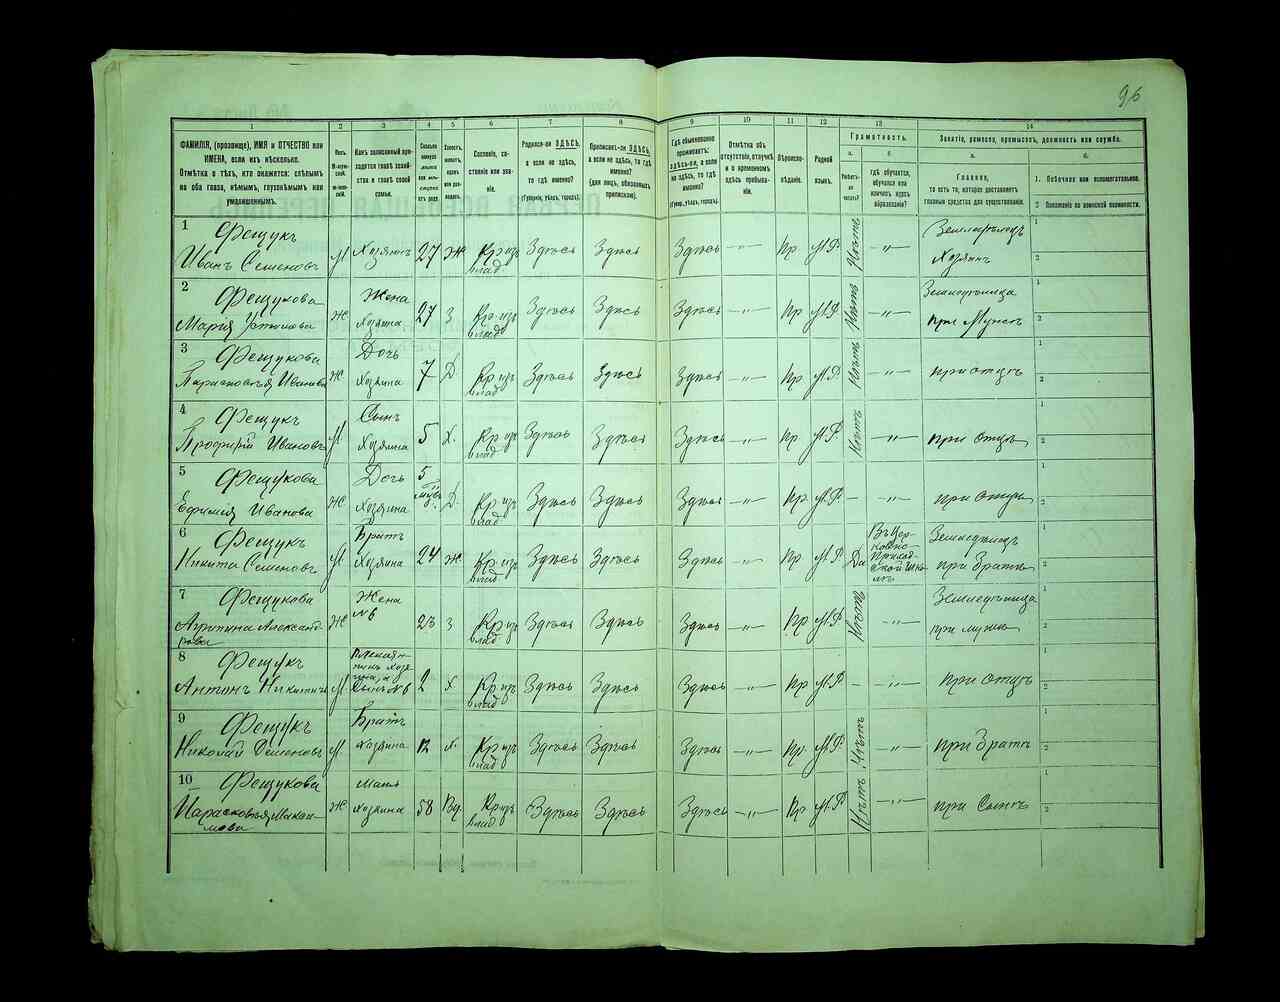 96
1 2 3 4 5 6 7 8 9 10 11 12 13 14
ФАМИЛІЯ, (прозвище), ИМЯ и ОТЧЕСТВО или
ИМЕНА, если ихъ нѣсколько.
Отмѣтка о тѣхъ, кто окажется: слѣпымъ
на оба глаза, нѣмымъ, глухонѣмымъ или
умалишеннымъ.
Полъ.
М-муж-
ской.
Ж-женскій.
Какъ записанный при-
ходится главѣ хозяй-
ства и главѣ своей
семьи.
Сколько
минуло
лѣтъ
или мѣ-
сяцевъ
отъ роду.
Холостъ,
женатъ,
вдовъ
или раз-
веденъ.
Сословіе, со-
стояніе или зва-
ніе.
Родился-ли ЗДѢСЬ,
а если не здѣсь,
то гдѣ именно?
(Губернія, уѣздъ, городъ).
Приписанъ-ли ЗДѢСЬ,
а если не здѣсь, то гдѣ
именно?
(для лицъ, обязанныхъ
припискою).
Гдѣ обыкновенно
проживаетъ:
ЗДѢСЬ-ли, а если
не здѣсь, то гдѣ
именно?
(Губер., уѣздъ, городъ).
Отмѣтка объ
отсутствіи, отлучкѣ
и о временномъ
здѣсь пребыва-
ніи.
Вѣроиспо-
вѣданіе.
Родной
языкъ.
Грамотность.
а. б.
Умѣетъ-
ли
читать?
гдѣ обучается,
обучался или
кончилъ курсъ
образованія?
Занятіе, ремесло, промыселъ, должность или служба.
а. б.
Главное,
то есть то, которое доставляетъ
главныя средства для существованія.
1. Побочное или вспомогательное.
2 Положеніе по воинской повинности.
1 Фещукъ
Иванъ Семеновъ М Хозяинъ 27 Ж Кр изъ влад Здѣсь Здѣсь Здѣсь —"— Пр М.Р. Нѣтъ —"— Земледѣлецъ Хозяинъ 1 2
2 Фещукова
Марія Ж Жена Хозяина 27 З Кр изъ влад Здѣсь Здѣсь Здѣсь —"— Пр М.Р. Нѣтъ —"— Земледѣлица при Мужѣ 1 2
3 Фещукова
Парасковья Иванова Ж Дочь Хозяина 7 Д Кр изъ влад Здѣсь Здѣсь Здѣсь —"— Пр М.Р. Нѣтъ —"— при отцѣ 1 2
4 Фещукъ
Ивановъ М Сынъ Хозяина 5 Х. Кр изъ влад Здѣсь Здѣсь Здѣсь —"— Пр М.Р. Нѣтъ —"— при Отцѣ 1 2
5 Фещукова
Ефимія Иванова Ж Дочь Хозяина 5 Д. Кр изъ влад Здѣсь Здѣсь Здѣсь —"— Пр М.Р. — —"— при Отцѣ 1 2
6 Фещукъ
Никита Семеновъ М Братъ Хозяина 24 Ж Кр изъ влад Здѣсь Здѣсь Здѣсь —"— Пр М.Р. Да Въ Цер-
ковно-
Приход-
ской Шко-
лѣ Земледѣлецъ при Братѣ 1 2
7 Фещукова
Агрипина Александ-
рова Ж Жена №6 23 З Кр изъ влад Здѣсь Здѣсь Здѣсь —"— Пр М.Р. Нѣтъ —"— Земледѣлица при мужѣ 1 2
8 Фещукъ
Антонъ Никитичъ М Племян-
никъ Хозя-
ина, а
Сынъ №6 2 Х Кр изъ влад Здѣсь Здѣсь Здѣсь —"— Пр М.Р. — —"— при Отцѣ 1 2
9 Фещукъ
Николай Семеновъ М Братъ Хозяина 12 Х. Кр изъ влад Здѣсь Здѣсь Здѣсь —"— Пр М.Р. Нѣтъ —"— при Братѣ 1 2
10 Фещукова
Парасковья Макси-
мова Ж Мать Хозяина 58 Вд. Кр изъ влад Здѣсь Здѣсь Здѣсь —"— Пр М.Р. Нѣтъ —"— при Сынѣ 1 2